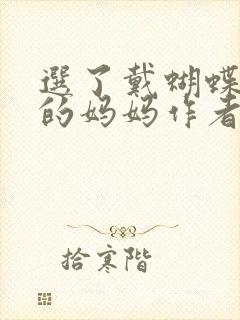 選了戴蝴蝶
的妈妈作者
拾寒階